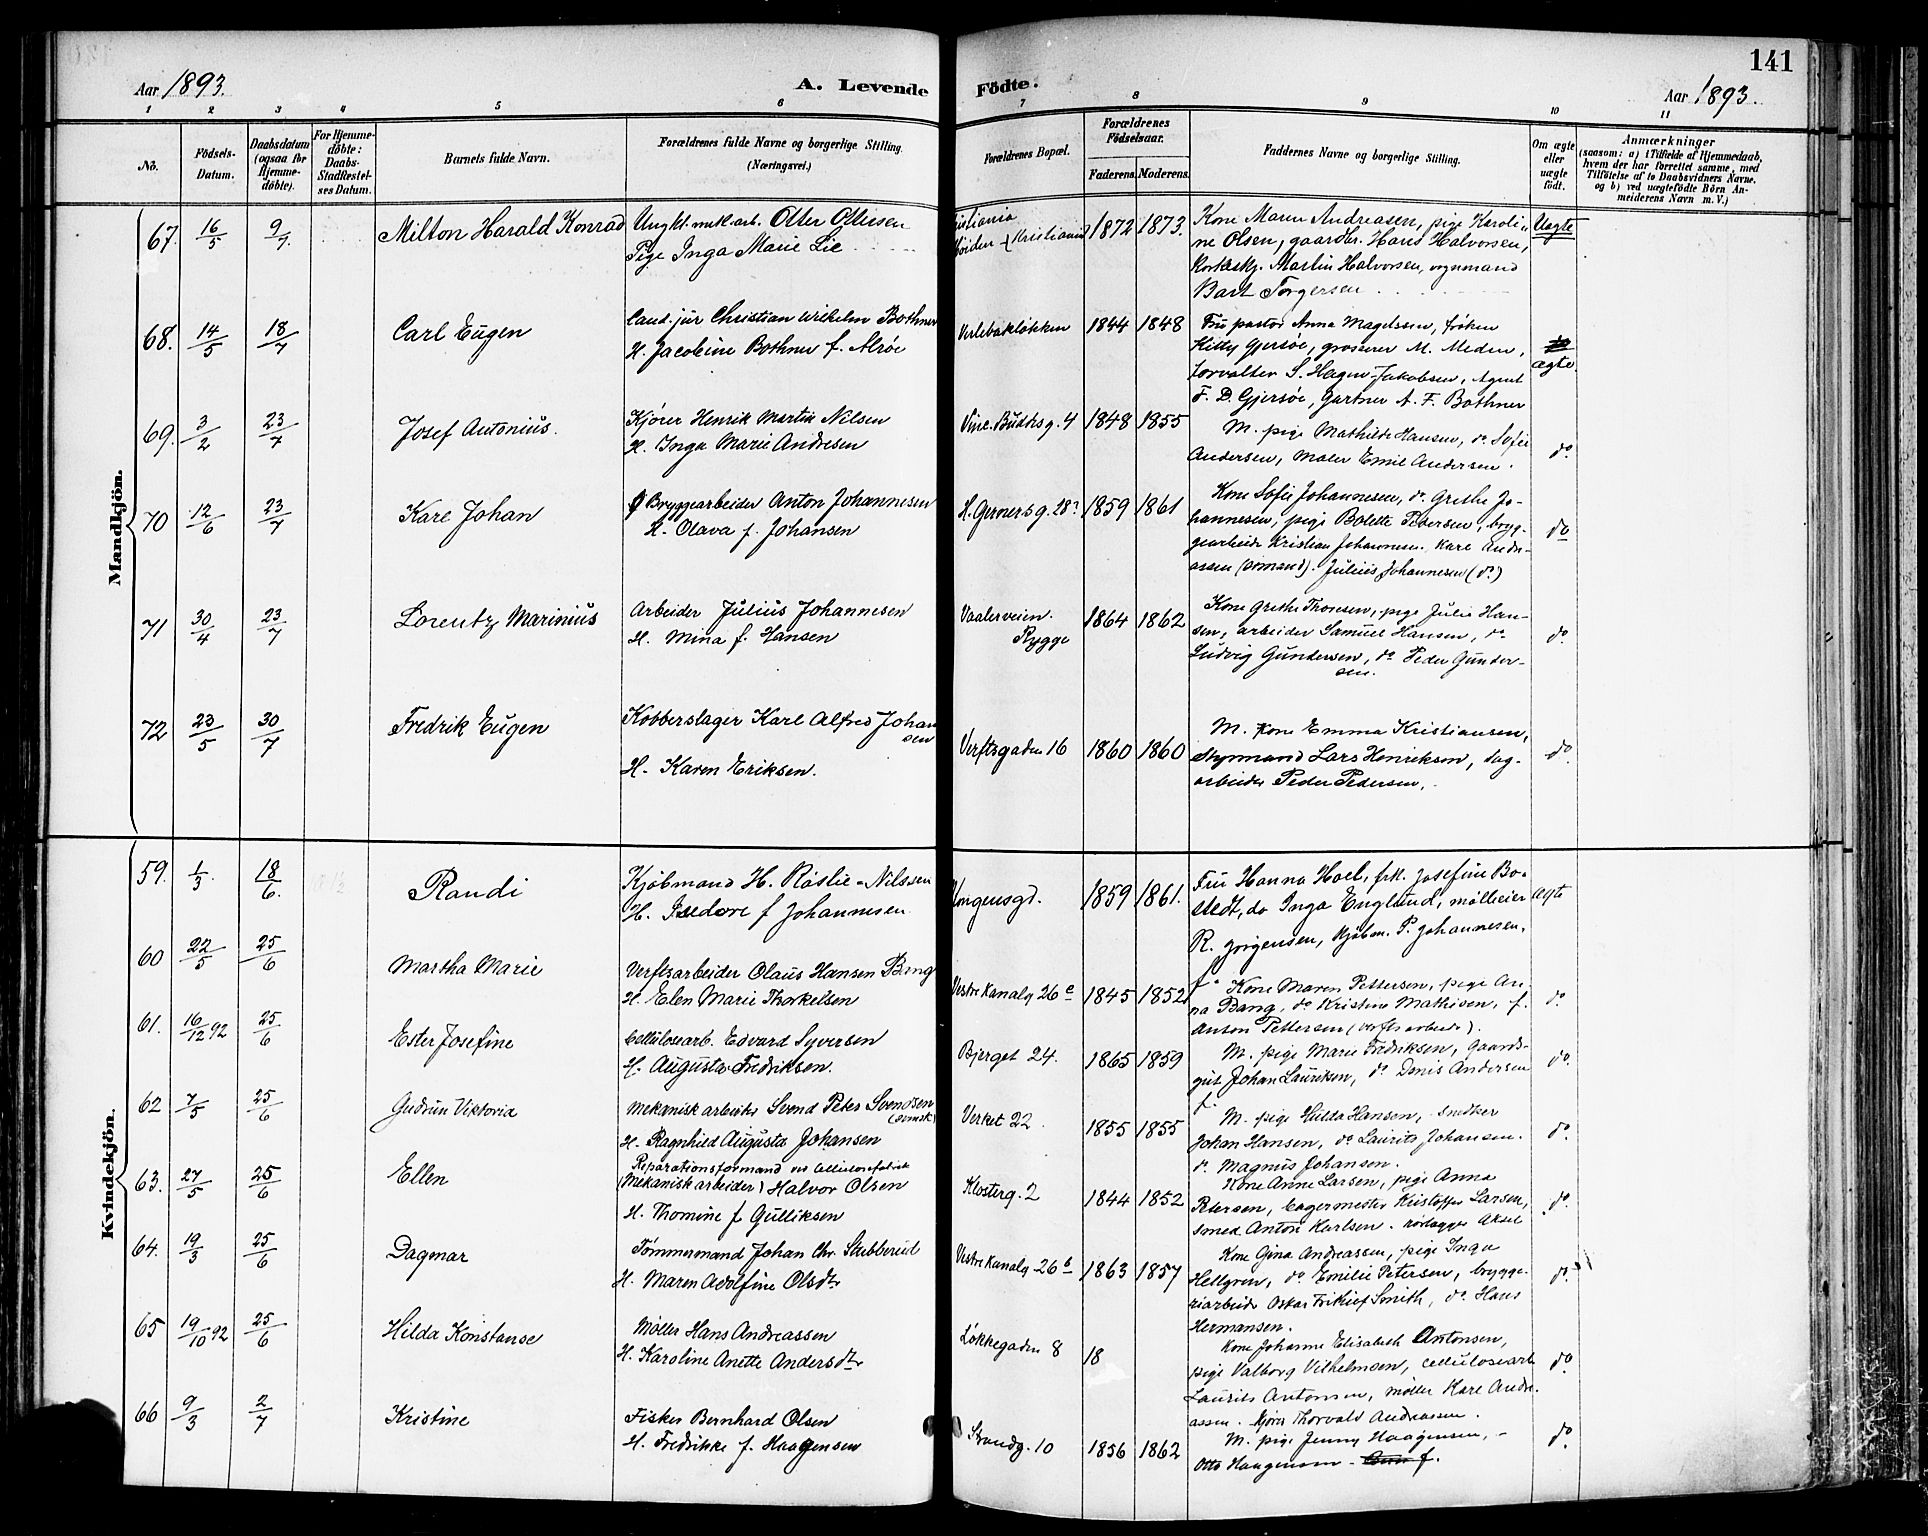 141
Aar 1893.
A. Levende Födte.
Aar 1893.
1 2 3 4 5 6 7 8 9 10 11
No.
Födsels-Datum.
Daabsdatum (ogsaa for Hjemme-döbte).
For Hjemme-döbte: Daabs-Stadfæstel-ses Datum.
Barnets fulde Navn.
Forældrenes fulde Navne og borgerlige Stilling. (Næringsvei.)
Forældrenes Bopæl.
Forældrenes Födselsaar.
Faderens. Moderens.
Faddernes Navne og borgerlige Stilling.
Om ægte eller uægte födt.
Anmærkninger
(saasom: a) i Tilfælde af Hjemmedaab,
hvem der har forrettet samme, med
Tilföielse af to Daabsvidners Navne,
og b) ved uægtefödte Börn An-
meiderens Navn m. V.)
Mandkjön.
67. 16/5 9/7 Milton Harald Konrad
Ungkl. mek. arb. Otter Ottissen
Pige Inga Marie Lie
Kristiania
1872 1873.
Kone Maren Andreasen, pige Karoli-
ne Olsen, gaardbr. Hans Halvorsen,
Korkeskj. Martin Halvorsen, vognmand
Bart Torgersen
Uægte
68. 14/5 18/7 Carl Eugen
Cand. jur Christian Wilhelm Bothner
H. Jacobine Bothner f. Alrøe
Verlebakløkken 1844 1848
Fru pastor Anna Magelssen, frøken
Kitty Gjersøe, grosserer M. Meden,
forvalter S. Hagen-Jakobsen, Agent
F. D. Gjersøe, Gartner A. F. Bothner
ægte
69. 3/2 23/7 Josef Antonius.
Kjører Henrik Martin Nilsen
H. Inga Marie Andresen
Vinc. Budthsg. 4 1848 1855
M. pige Mathilde Hansen, do Sofie
Andersen, Maler Emil Andersen.
do
70 12/6 23/7 Karl Johan
Bryggearbeider Anton Johannesen
H. Olava f. Johansen
H. Gernersg. 28 1859 1861
Kone Sofie Johannesen, do Grethe Jo-
hannesen, pige Bolette Petersen, bryg-
gearbeide Kristian Johannesen. Karl Andre-
assen (sømand). Julius Johannesen (do)
do
71 30/4 23/7 Lorentz Marinius
Arbeider Julius Johannesen
H. Mina f. Hansen
Vaalerveien.
Rygge
1864 1862
Kone Grethe Thoresen, pige Julie Han-
sen, arbeider Samuel Hansen, do
Ludvig Gundersen, do Peder Gunder-
sen.
do
72 23/5 30/7 Fredrik Eugen
Kobberslager Karl Alfred Johan
sen
H. Karen Eriksen.
Verftsgaden 16 1860 1860
M. Kone Emma Kristiansen,
Styrmand Lars Henriksen, Sag-
arbeider Peder Pedersen.
do
Kvindekjön.
59. 1/3. 18/6. Randi
Kjøbmand H. Røslie-Nilssen
H. Isedore f Johannesen
Kongensgd. 1859 1861.
Fru Hanna Hoel, frk. Josefine Bo-
stedt, do Inga England, mølleeier
R. Jørgensen, Kjøbm. P. Johannesen.
ægte
60 22/5 25/6 Martha Marie
Verftsarbeider Olaus Hansen Bang
H. Elen Marie Thorkelsen
Vestre Kanalg 26 c 1845 1852
Kone Maren Pettersen, pige An-
na Bang, do Kristine Mathisen, f.
Anton Pettersen (verftsarbeide).
do
61. 16/12 92 25/6 Ester Josefine
Cellulosearb. Edvard Syversen
H. Augusta Fredriksen.
Bjerget 24. 1865 1859
M. pige Marie Fredriksen, Gaards-
gut Johan Lauritsen, do Denis Andersen
do
62 7/5 25/6 Gudrun Viktoria
Mekanisk arbeider Svend Peter Svendsen
(svensk)
H. Ragnhild Augusta Johansen
Verket 22 1855 1855
M. pige Hulda Hansen, snedker
Johan Hansen, do Laurits Johansen.
do Magnus Johansen.
do
63. 27/5 25/6 Ellen
Reparationsformand ved Cellulosefabrik
(Mekanisk arbeider) Halvor Olsen
H. Thomine f Gulliksen
Klosterg. 2 1844 1852
Kone Anne Larsen, pige Anna
Petersen, bagermester Kristoffer Larsen,
smed Anton Karlsen. Aksel
do
64. 19/3 25/6 Dagmar
Tømmermand Johan Chr. Stubberud
H. Maren Adolfine Olsdtr
Vestre Kanalg 26 b 1863 1857
Kone Gina Andreassen, pige Inga
Hellgren, do Emilie Petersen, brygge-
riarbeide Oskar Frithiof Smith, do Hans
Hermansen.
do
65 19/10 92 25/6 Hilda Konstanse
Møller Hans Andreassen
H. Karoline Anette Andersdtr
Løkkegaden 8 18
Kone Johanne Elisabeth Antonsen,
pige Valborg Vilhelmsen, cellulosearb
Laurits Antonsen, møller Karl Andre-
assen. kjører Thorvald Andreassen.
do
66 9/3 2/7 Kristine
Fisker Bernhard Olsen
H. Fredrikke f. Haagensen
Strandg. 10 1856 1862
M. pige Jenny Haagensen,
Otto Haagensen
do